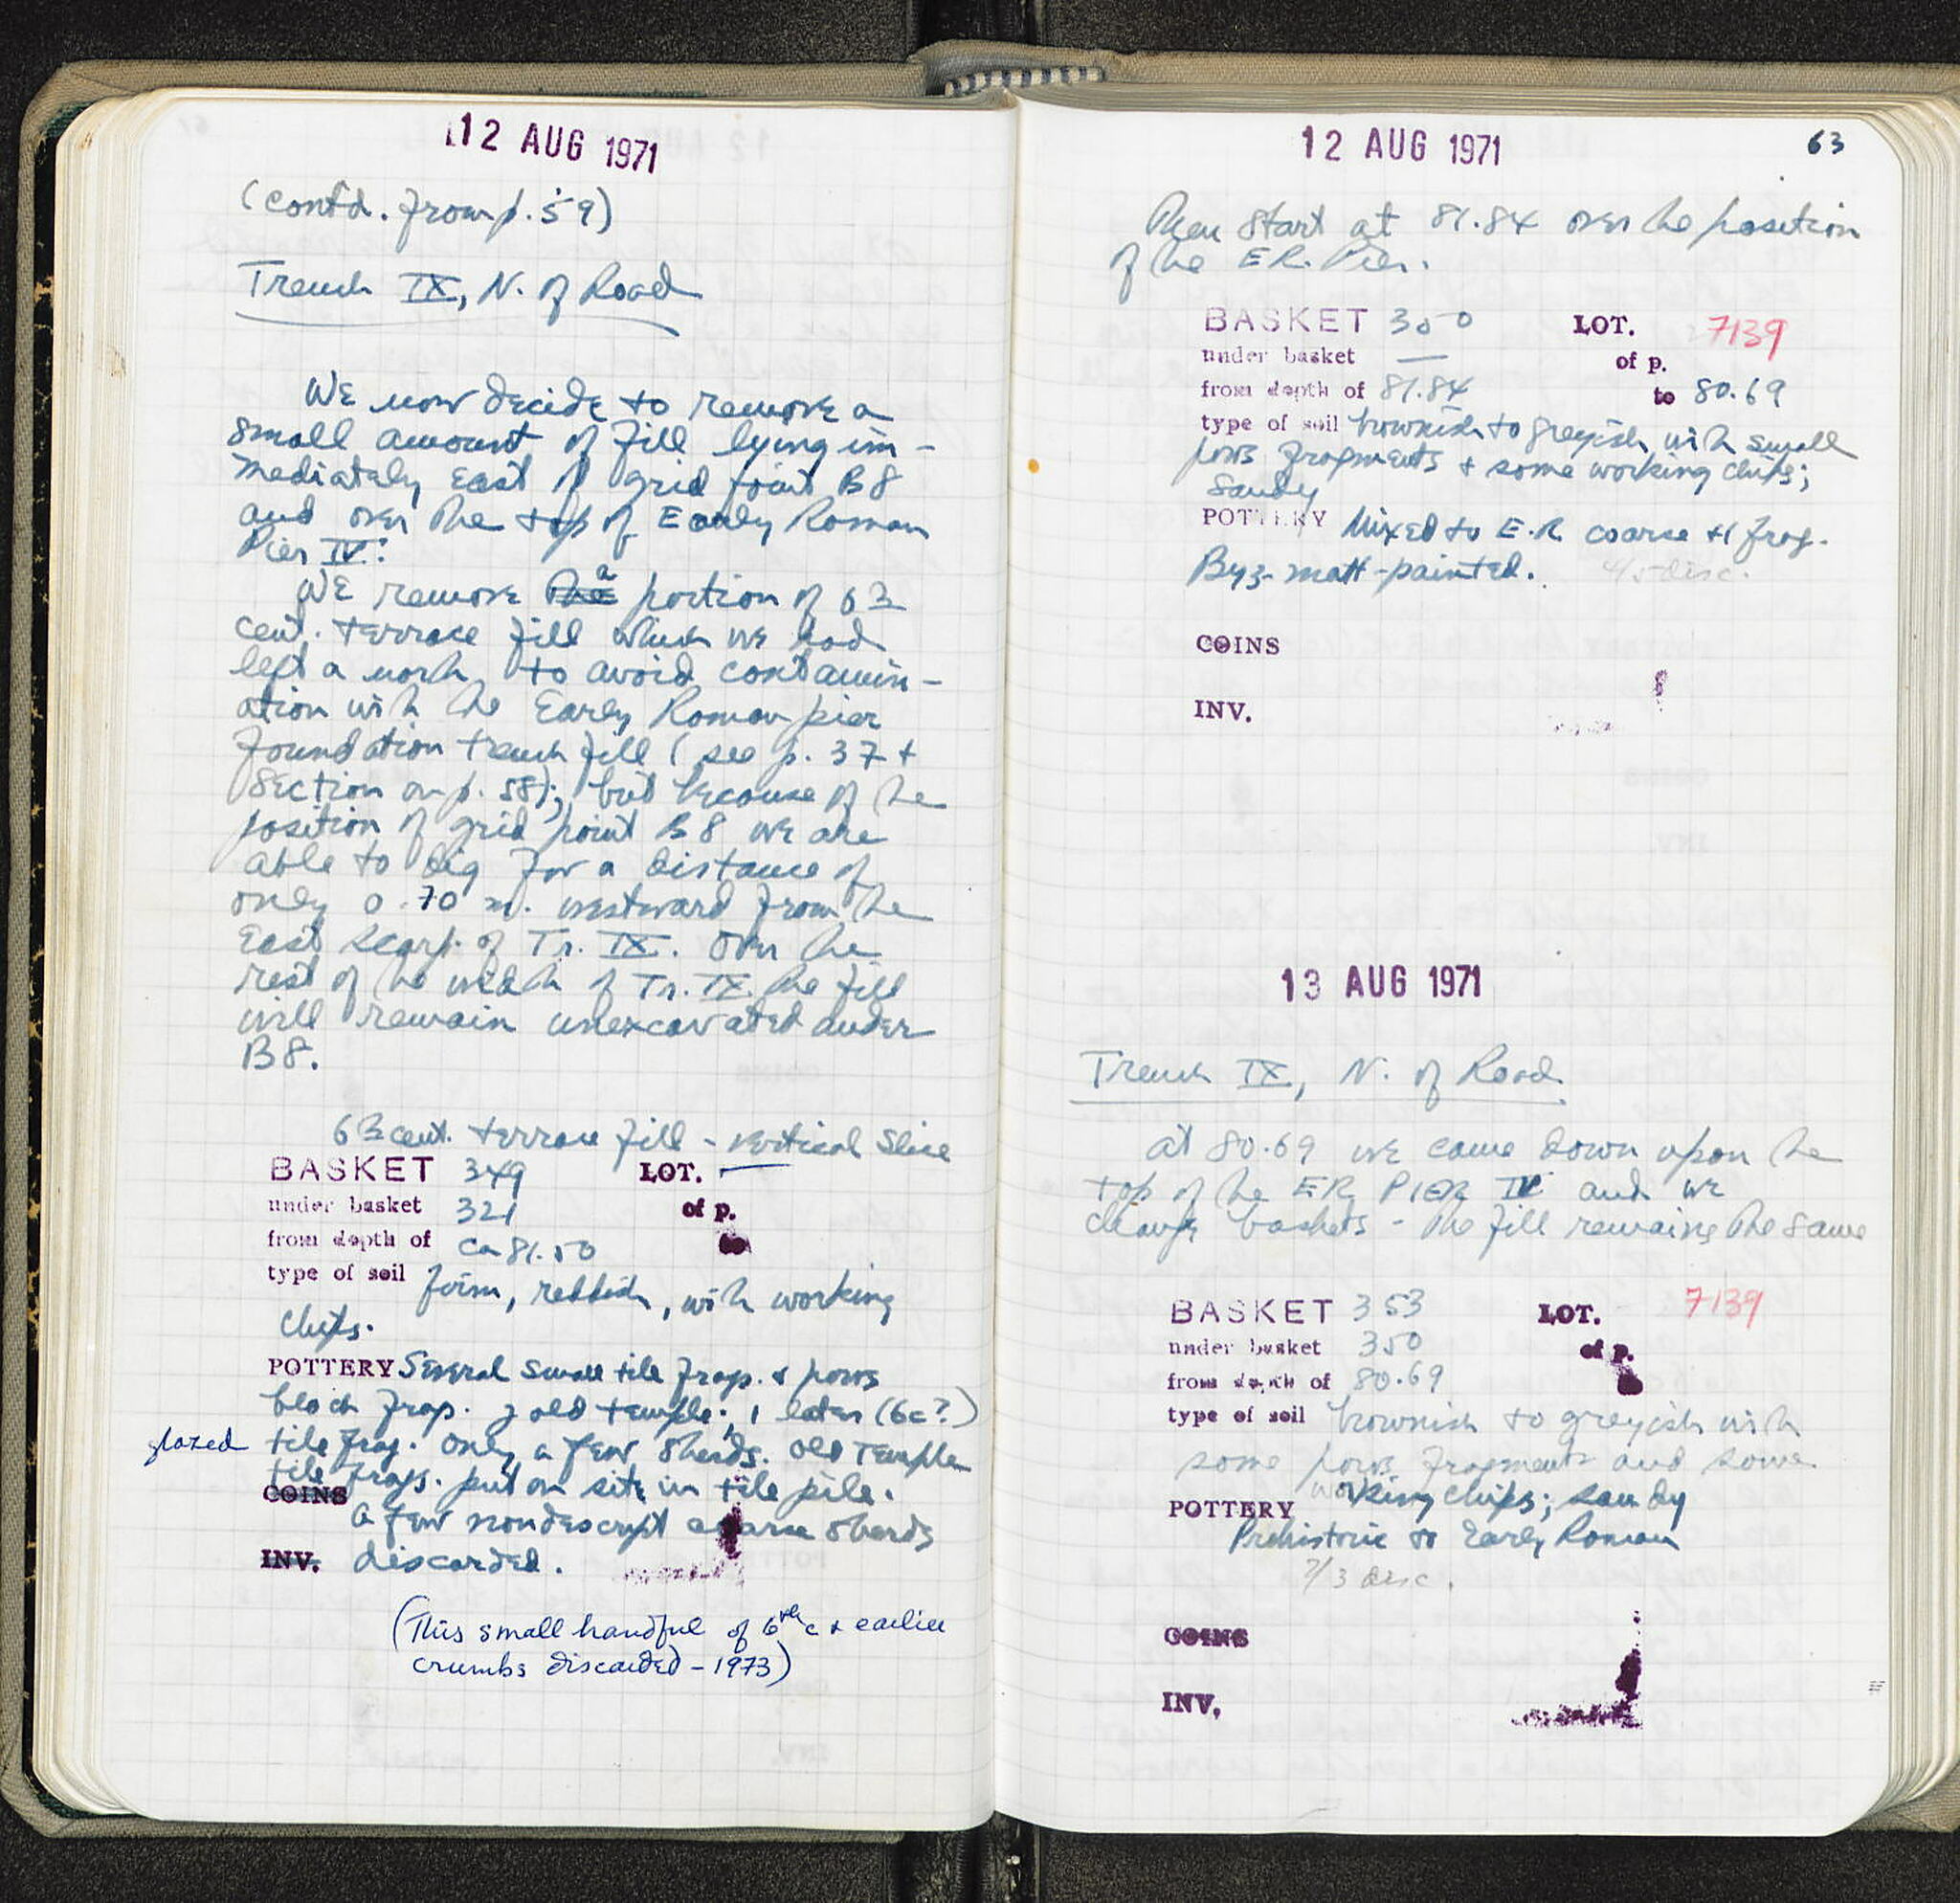 12 AUG 1971
(contd. from p. 59)
Trench IX, N. of Road
We now decide to remove a
small amount of fill lying im-
mediately East of grid point B8
and over the top of Early Roman
Pier IV.
We remove a portion of 6th
cent. terrace fill which we had
left a north to avoid contamin-
ation with the Early Roman pier
foundation trench fill (see p. 37 +
section on p. 58); but because of the
position of grid point B8 we are
able to dig for a distance of
only 0.70 m. westward from the
East scarp of Tr. IX. Over the
rest of the width of Tr. IX the fill
will remain unexcavated under
B8.
6th cent. terrace fill - vertical slice
BASKET 349 LOT. —
under basket 321 of p.
from depth of ca 81.50
type of soil firm, reddish, with working
chips.
POTTERY Several small tile frags. & poros
block frag. of old temple; 1 later (6c?)
glazed tile frag. Only a few sherds. Old Temple
tile frags. put on site in tile pile.
COINS
A few nondescript coarse sherds
INV. discarded.
(This small handful of 6th c & earlier
crumbs discarded - 1973)
12 AUG 1971 63
Then start at 81.84 over the position
of the E.R. Pier.
BASKET 350 LOT. 7139
under basket — of p.
from depth of 81.84 to 80.69
type of soil brownish to greyish with small
poros fragments + some working chips;
sandy
POTTERY Mixed to E.R. coarse +1 frag.
Byz. matt-painted. 4/5 disc.
COINS
INV.
13 AUG 1971
Trench IX, N. of Road
At 80.69 we come down upon the
top of the ER PIER IV and we
change baskets - the fill remains the same
BASKET 353 LOT. 7139
under basket 350 of p.
from depth of 80.69
type of soil brownish to greyish with
some poros fragments and some
working chips; sandy
POTTERY
Prehistoric to Early Roman
2/3 disc.
COINS
INV.